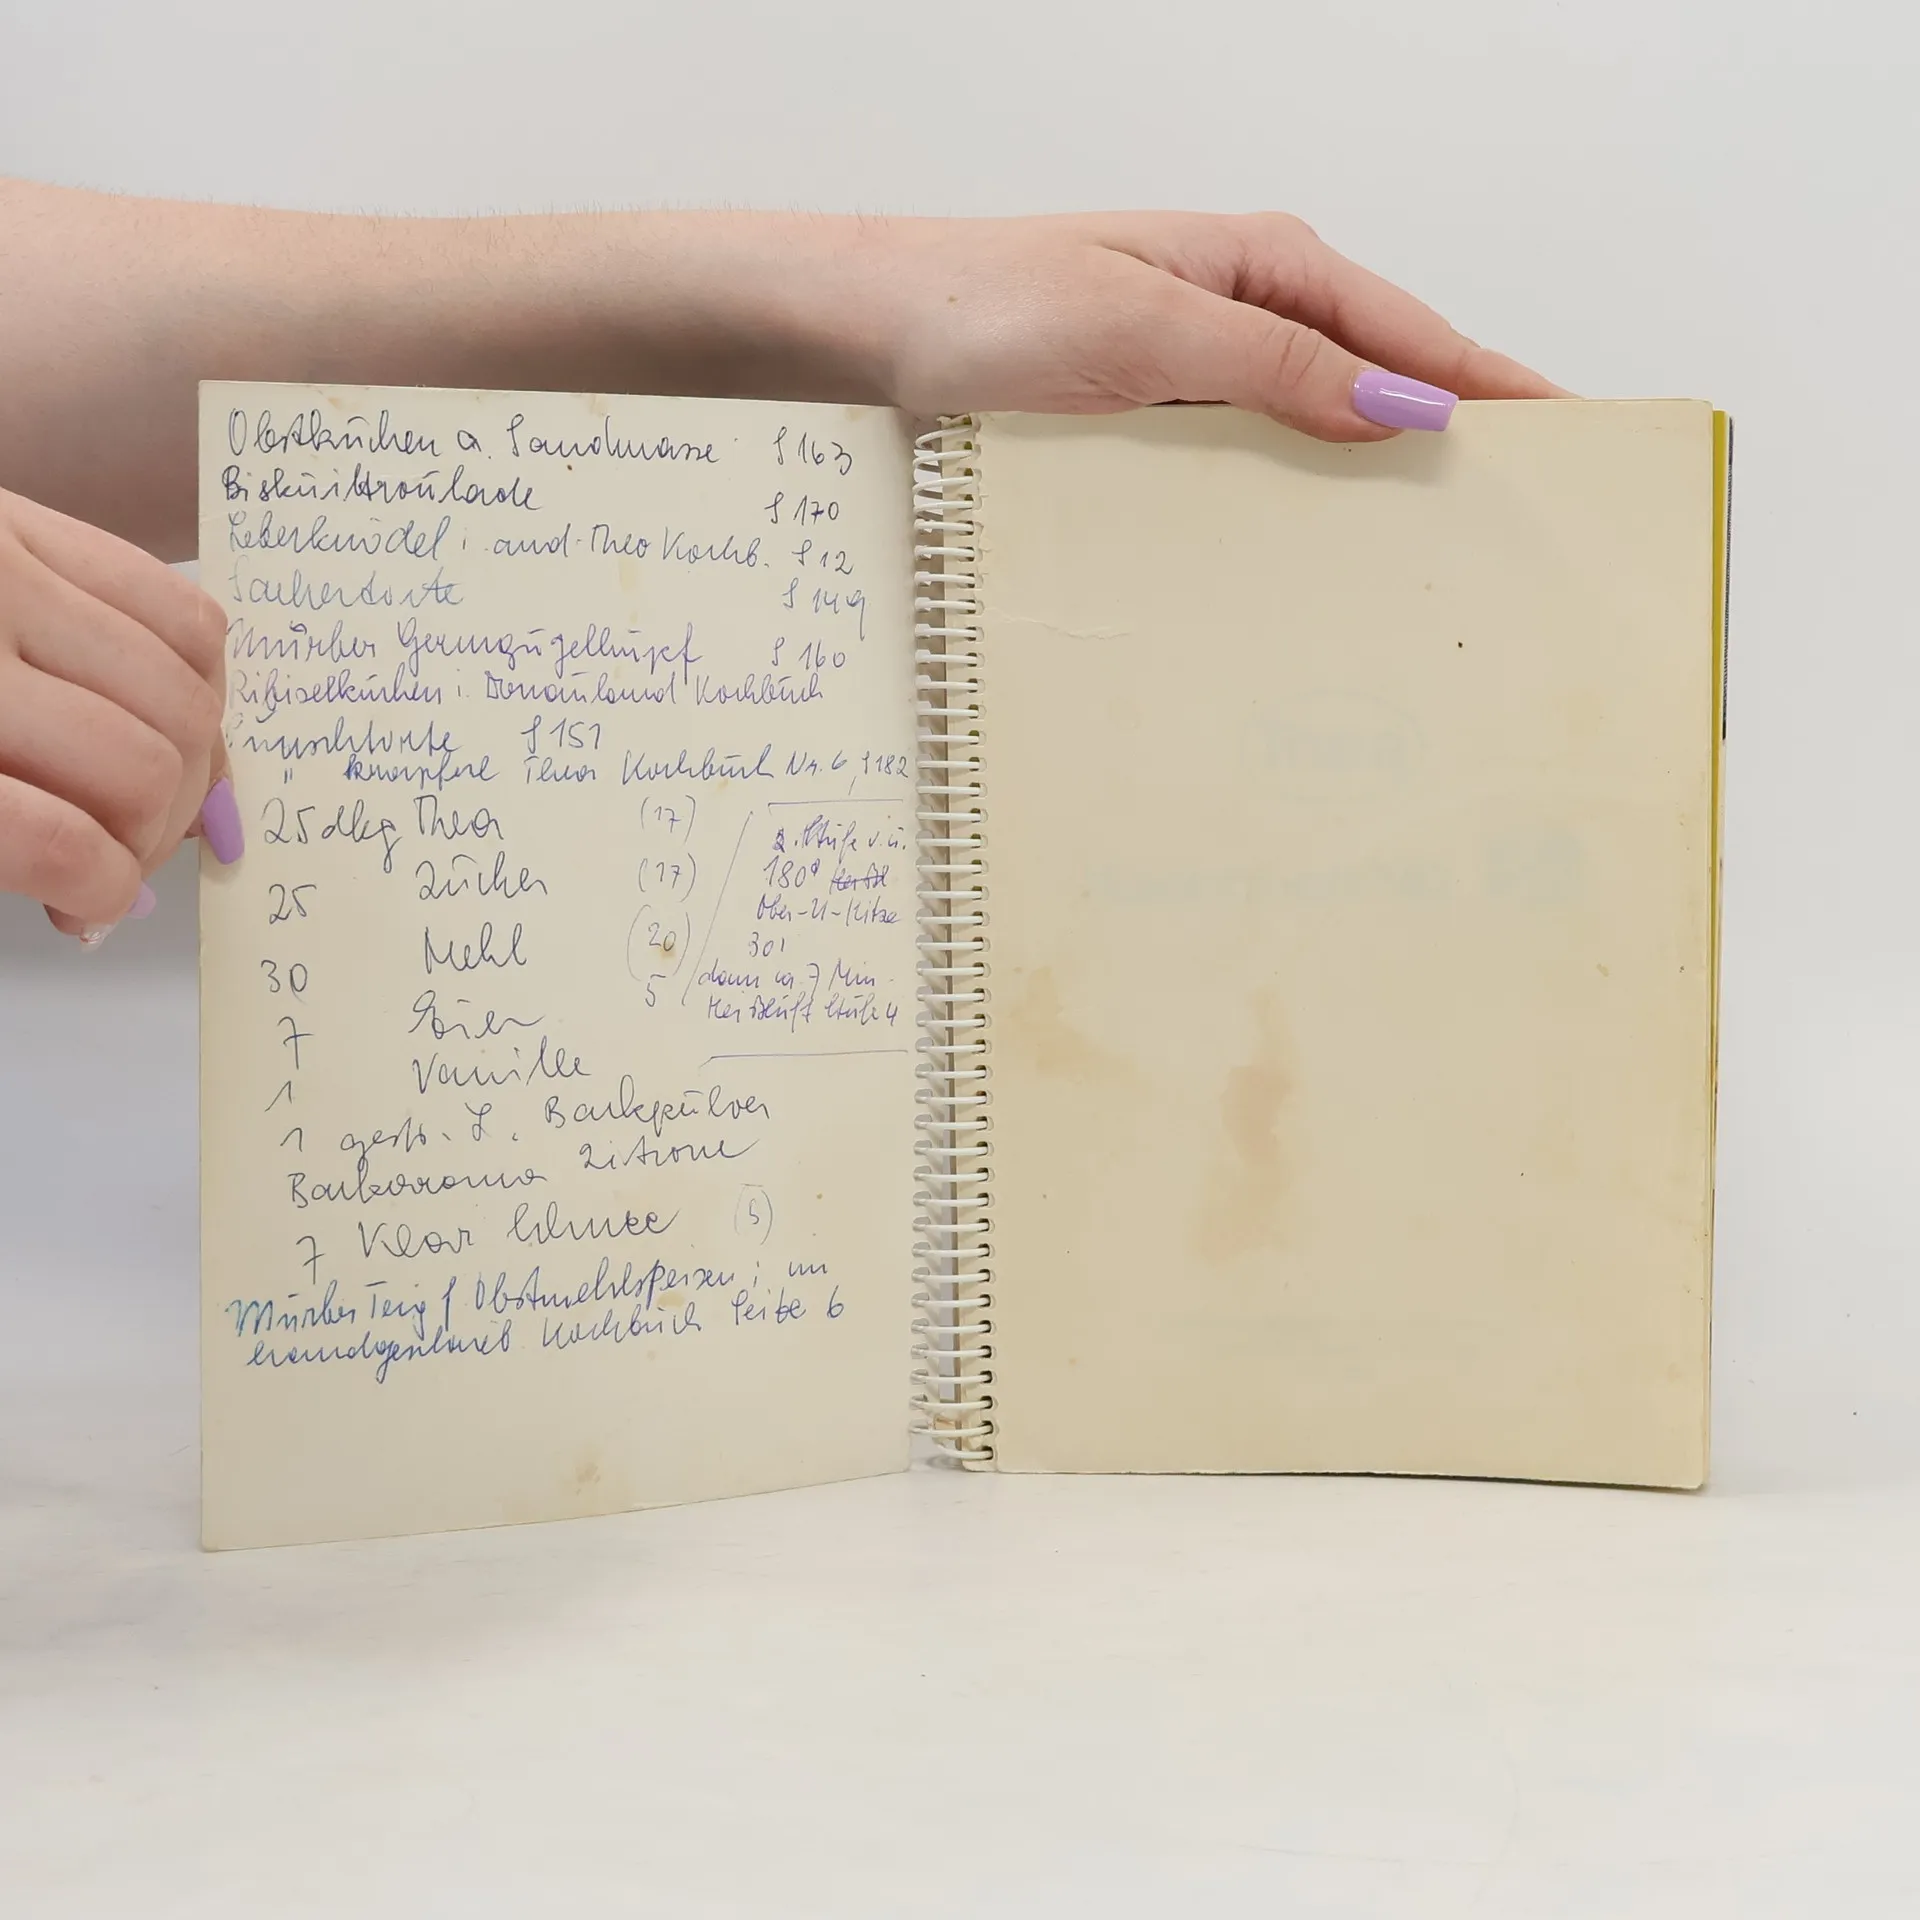 Obstkuchen a. Sandmasse S 163
Biskuitroulade S 170
Leberknödel i. and. Theo Kochb. S 12
Sachertorte S 149
Mürber Germgugelhupf S 160
Ribiselkuchen i. Donauland Kochbuch
Punschtorte S 151
" krapferl Thea Kochbuch Nr. 6, S 182
25 dkg Thea (17)
25 Zucker (17)
30 Mehl (20)
7 Eier 5
1 Vanille
1 gestr. L. Backpulver
Backaroma Zitrone
7 Klar Schnee (5)
2. Stufe v. u.
180°
Ober-U-Hitze
30'
dann ca 7 Min.
Heißluft Stufe 4
Mürber Teig f Obstmehlspeisen; im
handgeschrieb. Kochbuch Seite 6